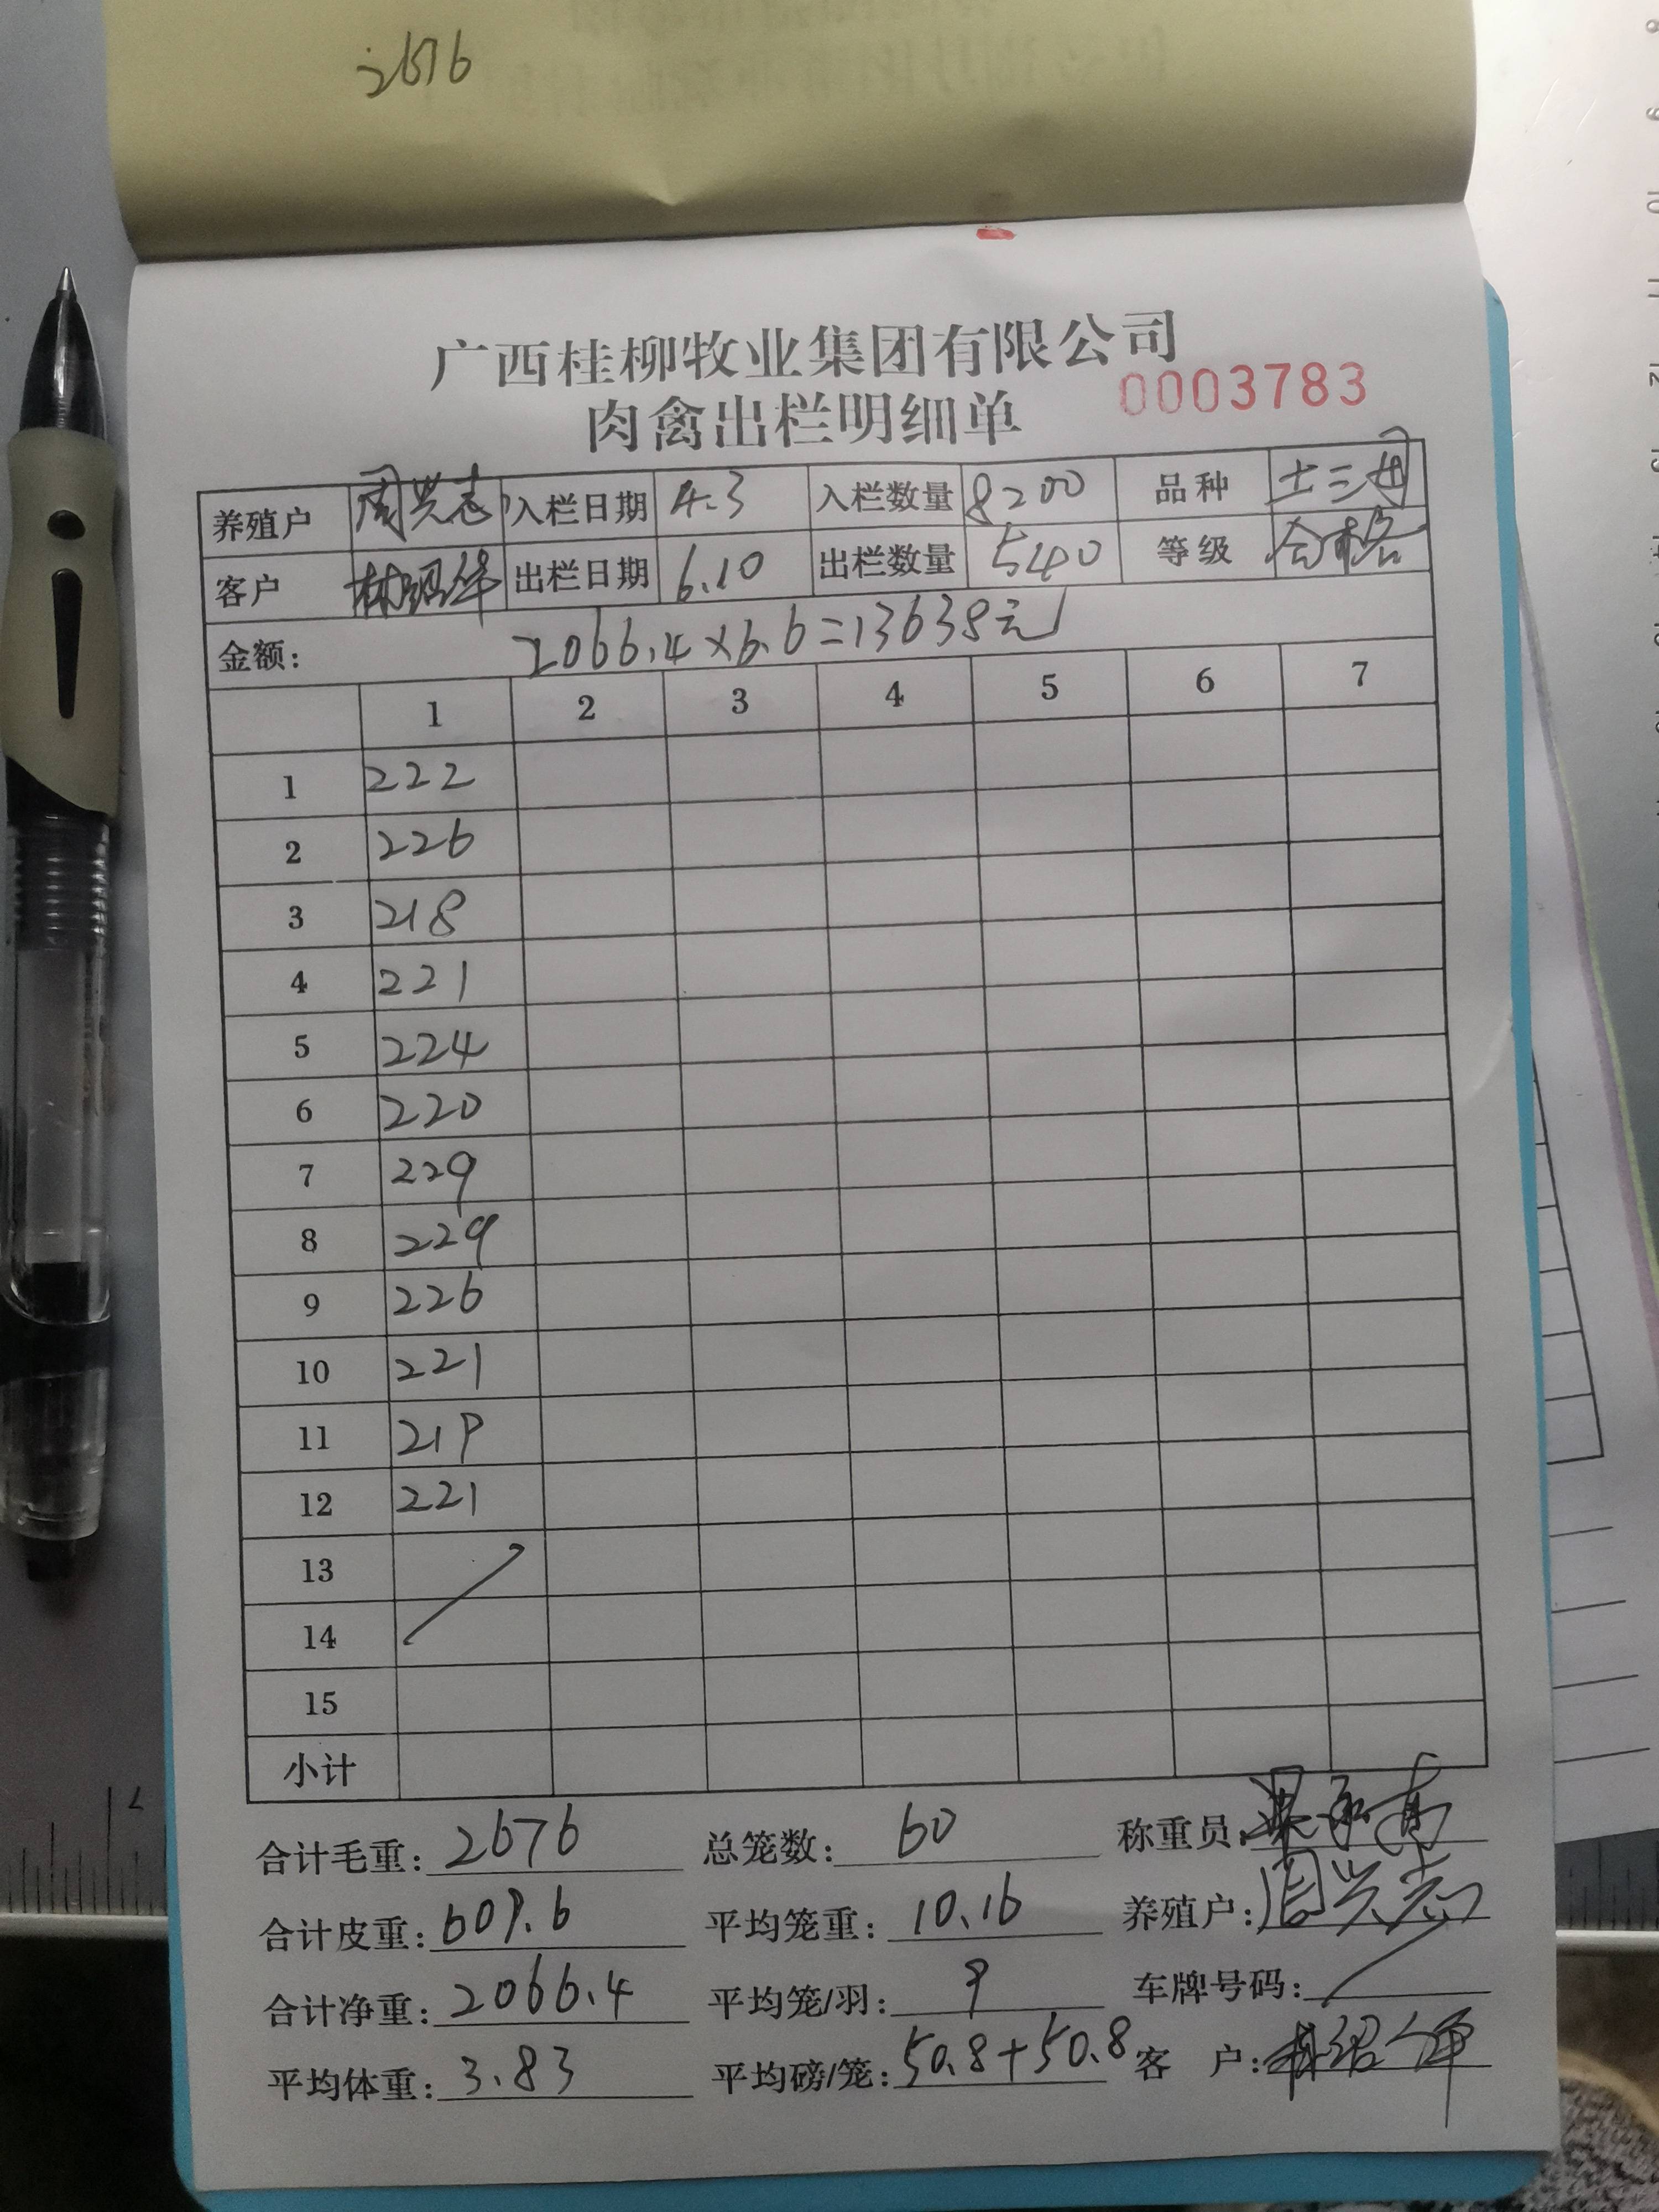 2676
广西桂柳牧业集团有限公司
肉禽出栏明细单 0003783
养殖户 周兴志 入栏日期 4.3 入栏数量 8200 品种 土三母
客户 林绍华 出栏日期 6.10 出栏数量 540 等级 合格
金额: 2066.4×6.6=13638元
1 2 3 4 5 6 7
1 222
2 226
3 218
4 221
5 224
6 220
7 229
8 229
9 226
10 221
11 219
12 221
13
14
15
小计
合计毛重: 2676 总笼数: 60 称重员:
合计皮重: 609.6 平均笼重: 10.16 养殖户: 周兴志
合计净重: 2066.4 平均笼/羽: 9 车牌号码:
平均体重: 3.83 平均磅/笼: 50.8+50.8 客 户: 林绍华